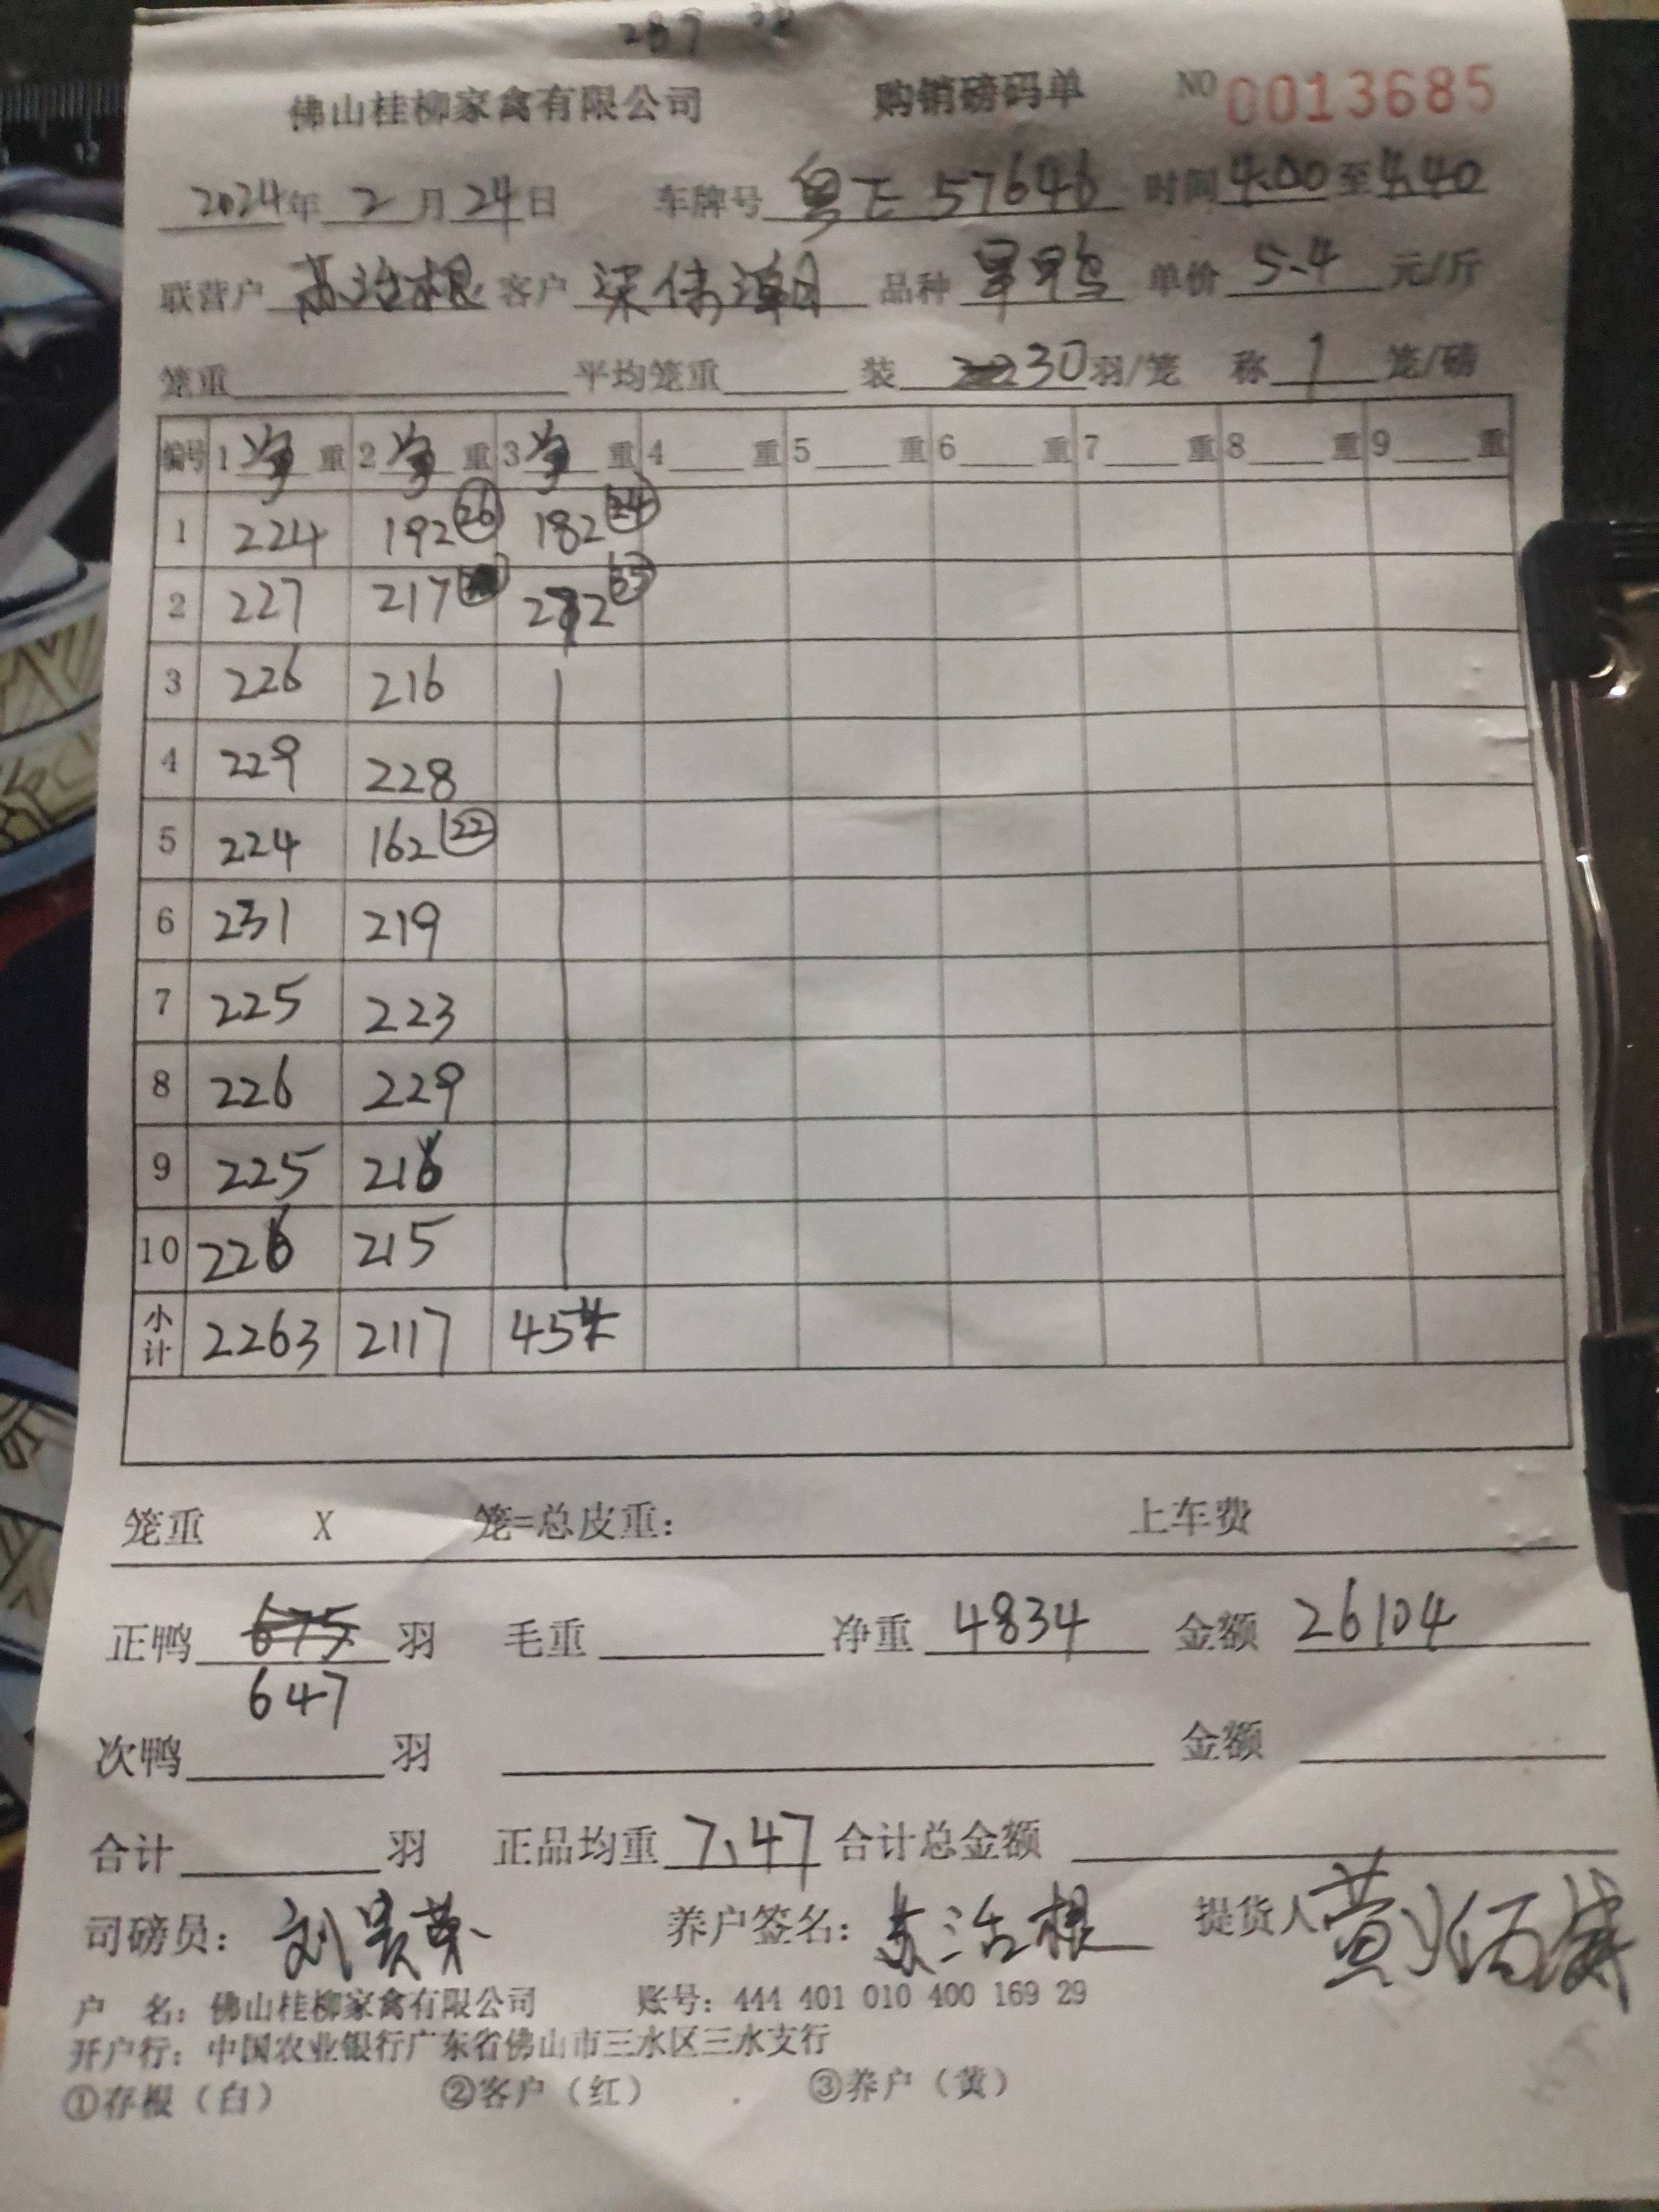 287
佛山桂柳家禽有限公司 购销磅码单 NO 0013685
2024年 2 月 24 日 车牌号 粤E 57646 时间 4.00 至 4.40
联营户 苏治根 客户 梁伟潮 品种 旱鸭 单价 5.4 元/斤
笼重 平均笼重 装 30 羽/笼 称 1 笼/磅
编号 1 净 重 2 净 重 3 净 重 4 重 5 重 6 重 7 重 8 重 9 重
1 224 192 26 182 24
2 227 217 272 35
3 226 216
4 229 228
5 224 162 22
6 231 219
7 225 223
8 226 229
9 225 216
10 226 215
小计 2263 2117 454
笼重 X 笼=总皮重: 上车费
正鸭 675 羽 毛重 净重 4834 金额 26104
647
次鸭 羽 金额
合计 羽 正品均重 7.47 合计总金额
司磅员: 养户签名: 苏治根 提货人 黄
户 名: 佛山桂柳家禽有限公司 账号: 444 401 010 400 169 29
开户行: 中国农业银行广东省佛山市三水区三水支行
①存根（白） ②客户（红） ③养户（黄）